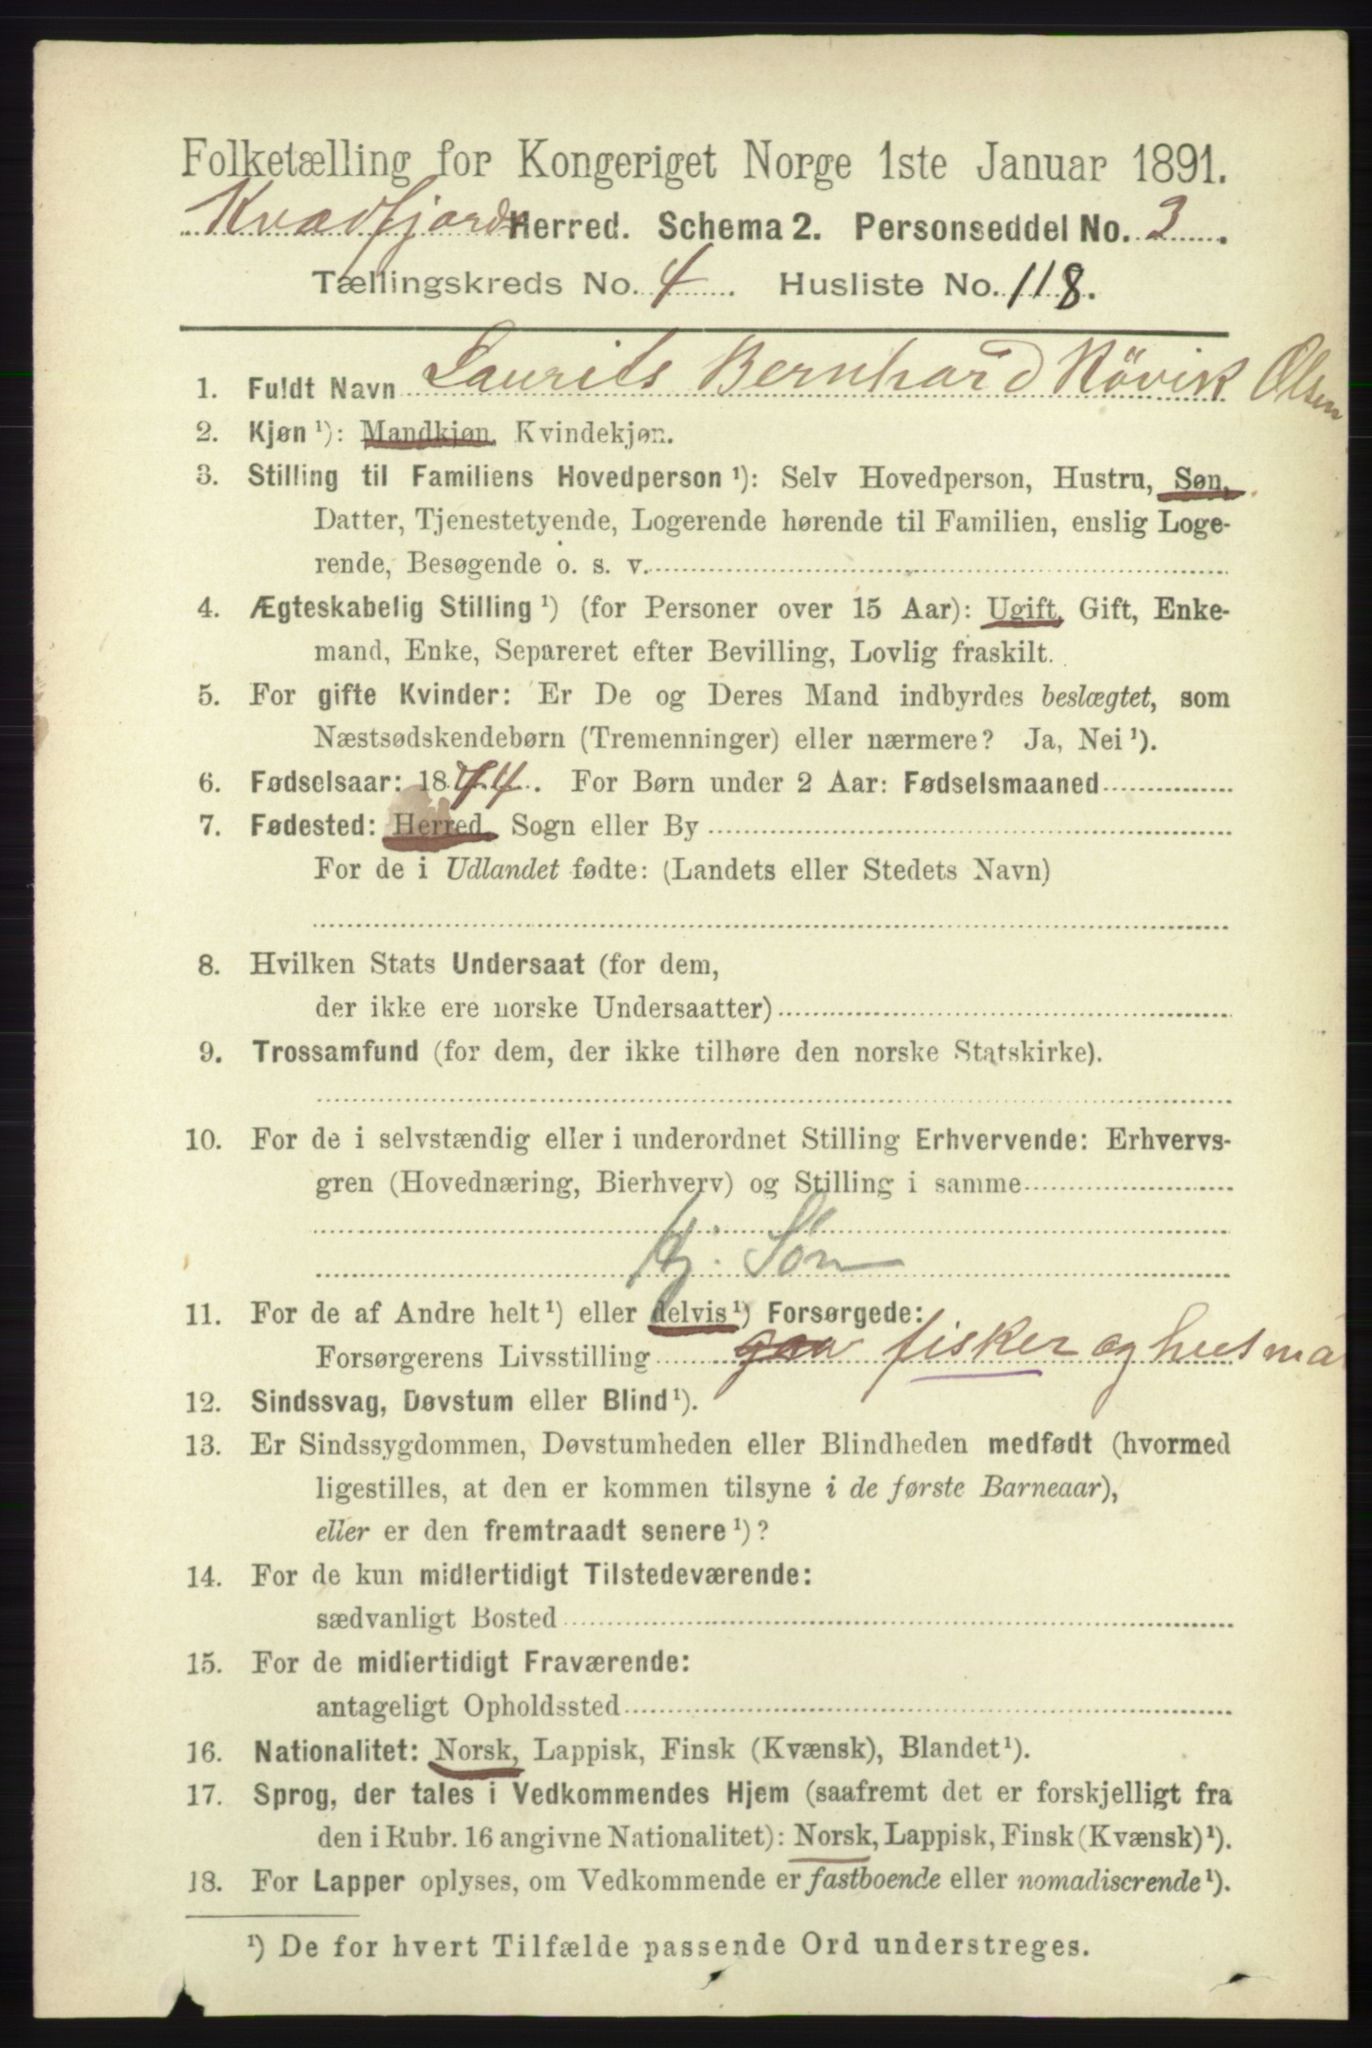 Folketælling for Kongeriget Norge 1ste Januar 1891.
Kvædfjords Herred. Schema 2. Personseddel No. 3.
Tællingskreds No. 4. Husliste No. 118.
1. Fuldt Navn Laurits Bernhard Røvik Olsen
2. Kjøn ¹): Mandkjøn, Kvindekjøn.
3. Stilling til Familiens Hovedperson ¹): Selv Hovedperson, Hustru, Søn,
Datter, Tjenestetyende, Logerende hørende til Familien, enslig Loge-
rende, Besøgende o. s. v.
4. Ægteskabelig Stilling ¹) (for Personer over 15 Aar): Ugift, Gift, Enke-
mand, Enke, Separeret efter Bevilling, Lovlig fraskilt.
5. For gifte Kvinder: Er De og Deres Mand indbyrdes beslægtet, som
Næstsødskendebørn (Tremenninger) eller nærmere? Ja, Nei ¹).
6. Fødselsaar: 1874. For Børn under 2 Aar: Fødselsmaaned
7. Fødested: Herred, Sogn eller By
For de i Udlandet fødte: (Landets eller Stedets Navn)
8. Hvilken Stats Undersaat (for dem,
der ikke ere norske Undersaatter)
9. Trossamfund (for dem, der ikke tilhøre den norske Statskirke).
10. For de i selvstændig eller i underordnet Stilling Erhvervende: Erhvervs-
gren (Hovednæring, Bierhverv) og Stilling i samme
hj. Søn
11. For de af Andre helt ¹) eller delvis ¹) Forsørgede:
Forsørgerens Livsstilling fisker og husma
12. Sindssvag, Døvstum eller Blind ¹).
13. Er Sindssygdommen, Døvstumheden eller Blindheden medfødt (hvormed
ligestilles, at den er kommen tilsyne i de første Barneaar),
eller er den fremtraadt senere ¹)?
14. For de kun midlertidigt Tilstedeværende:
sædvanligt Bosted
15. For de midlertidigt Fraværende:
antageligt Opholdssted
16. Nationalitet: Norsk, Lappisk, Finsk (Kvænsk), Blandet ¹).
17. Sprog, der tales i Vedkommendes Hjem (saafremt det er forskjelligt fra
den i Rubr. 16 angivne Nationalitet): Norsk, Lappisk, Finsk (Kvænsk) ¹).
18. For Lapper oplyses, om Vedkommende er fastboende eller nomadiserende ¹).
¹) De for hvert Tilfælde passende Ord understreges.